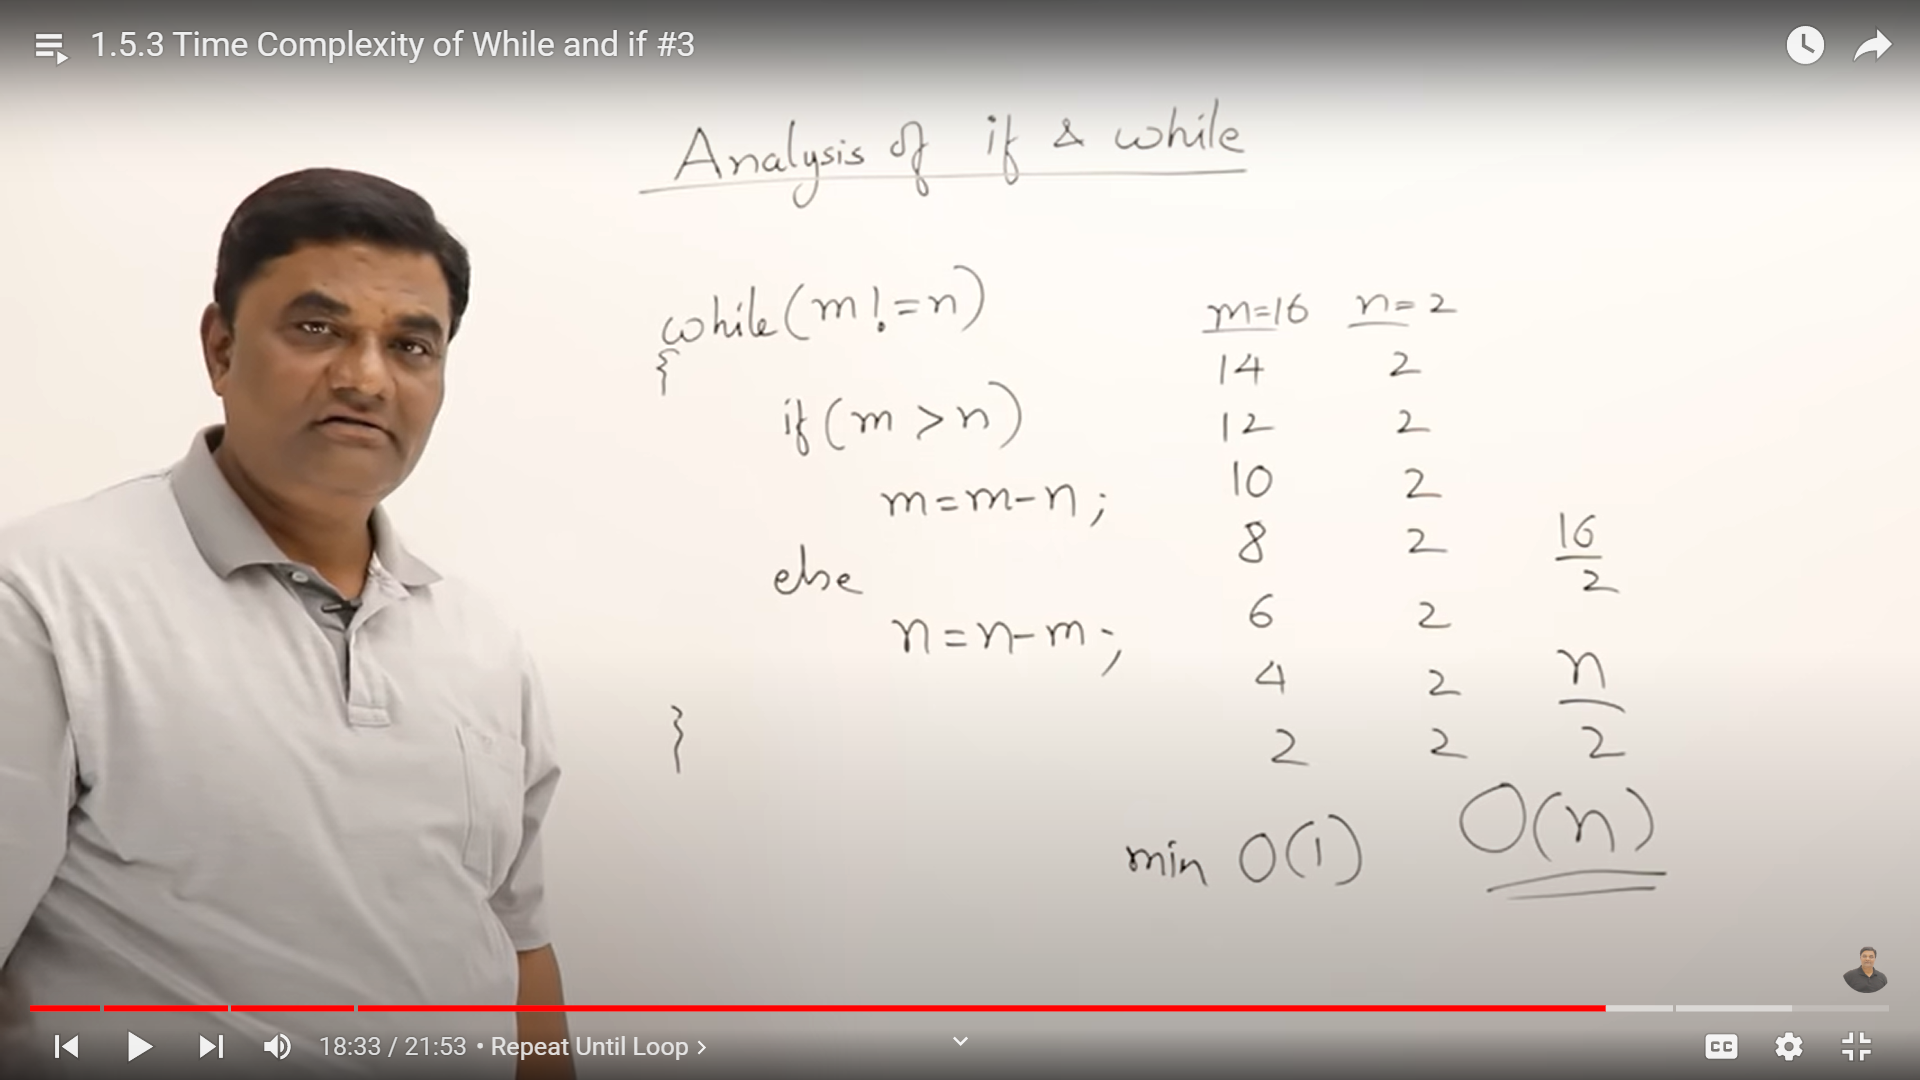 1.5.3 Time Complexity of While and if #3
Analysis of if & while
while(m!=n)
{
if(m >n)
m=m-n;
else
n=n-m;
}
m=16 n=2
14 2
12 2
10 2
8 2
6 2
4 2
2 2
16
2
n
2
min O(1) O(n)
18:33 / 21:53 • Repeat Until Loop ›
CC